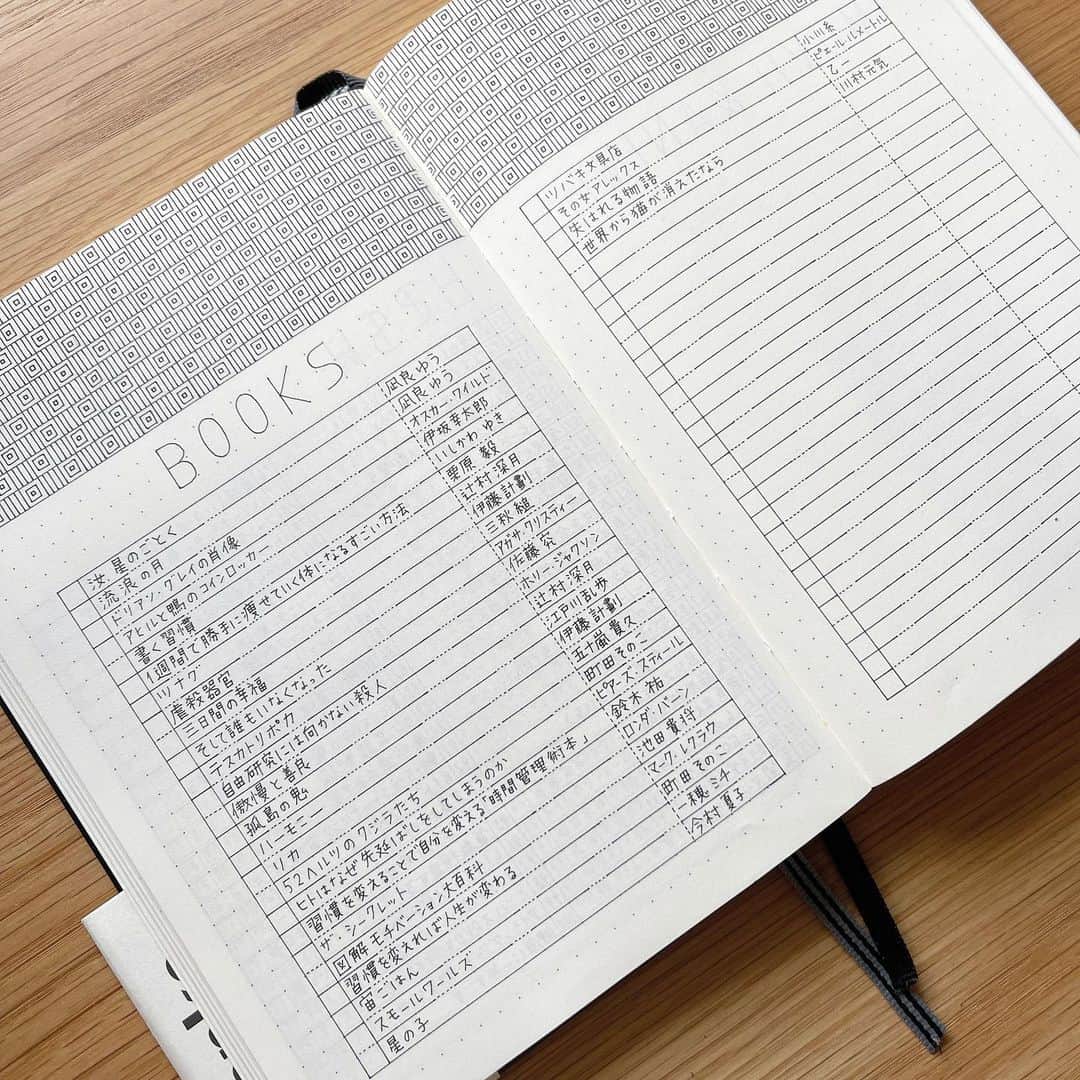 BOOKS
汝、星のごとく 凪良ゆう
流浪の月 凪良ゆう
ドリアン・グレイの肖像 オスカー・ワイルド
アヒルと鴨のコインロッカー 伊坂幸太郎
書く習慣 いしかわゆき
1週間で勝手に痩せていく体になるすごい方法 栗原 毅
ツナグ 辻村深月
虐殺器官 伊藤計劃
三日間の幸福 三秋縋
そして誰もいなくなった アガサ・クリスティー
テスカトリポカ 佐藤 究
自由研究には向かない殺人 ホリー・ジャクソン
傲慢と善良 辻村深月
孤島の鬼 江戸川乱歩
ハーモニー 伊藤計劃
リカ 五十嵐貴久
52ヘルツのクジラたち 町田そのこ
ヒトはなぜ先延ばしをしてしまうのか ピアーズ・スティール
習慣を変えることで自分を変える「時間管理術本」 鈴木 祐
ザ・シークレット ロンダ・バーン
図解モチベーション大百科 池田貴将
習慣を変えれば人生が変わる マーク・レクラウ
宙ごはん 町田そのこ
スモールワールズ 一穂ミチ
星の子 今村夏子
ツバキ文具店 小川糸
その女アレックス ピエール・ルメートル
失はれる物語 乙一
世界から猫が消えたなら 川村元気